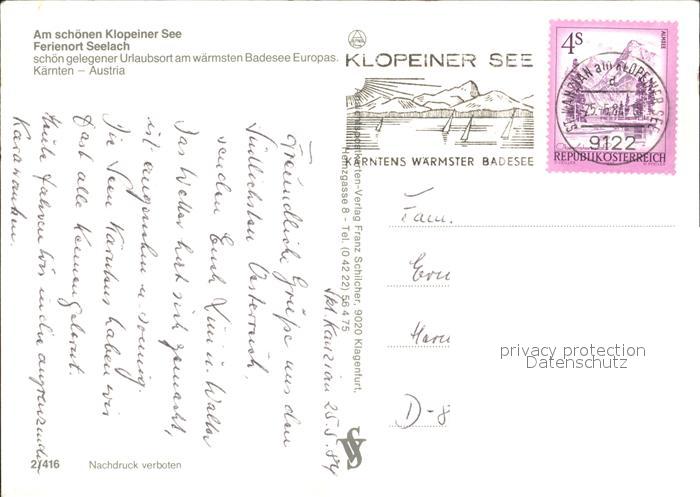 Am schönen Klopeiner See
Ferienort Seelach
schön gelegener Urlaubsort am wärmsten Badesee Europas.
Kärnten – Austria
KLOPEINER SEE
KÄRNTENS WÄRMSTER BADESEE
4S
ALMSEE
REPUBLIK ÖSTERREICH
ST. KANZIAN am KLOPEINER SEE
d
25.-5.84
9122
St. Kanzian 25.5.84
Freundliche Grüße aus dem
südlichsten Österreich.
senden Euch Lini u. Walter
Das Wetter hat sich gemacht,
ist angenehm u. sonnig.
Die Seen Kärntens haben wir
fast alle kennengelernt.
Heute fahren wir in die angrenzenden
Karawanken.
Ansichtskarten-Verlag Franz Schilcher, 9020 Klagenfurt,
Heinzgasse 8 - Tel. (0 42 22) 56 4 75
Fam.
D-8
privacy protection
Datenschutz
2/416
Nachdruck verboten